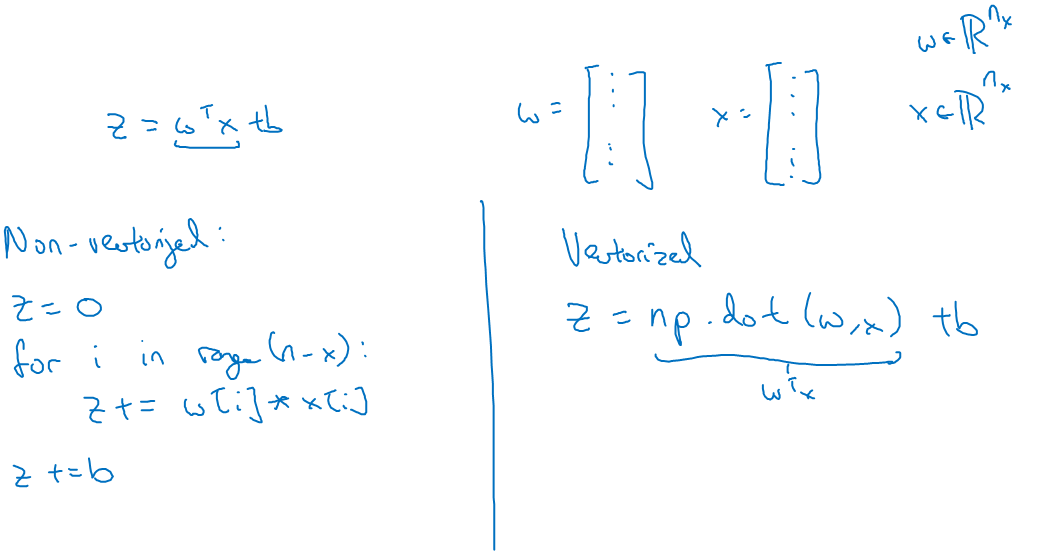 w ∈ ℝ^{n_x}
z = w^T x + b
w = [⋮ ⋮]
x = [⋮ ⋮]
x ∈ ℝ^{n_x}
Non-vectorized:
z = 0
for i in range(n-x):
z += w[i] * x[i]
z += b
Vectorized
z = np.dot(w,x) + b
w^T x